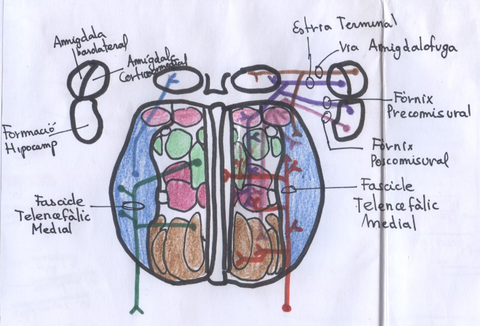 Amígdala
basolateral
Amígdala
Corticomedial
Formació
Hipocamp
Fascicle
Telencefàlic
Medial
Estria Terminal
Via Amigdalofuga
Fòrnix
Precomisural
Fòrnix
Poscomisural
Fascicle
Telencefàlic
Medial